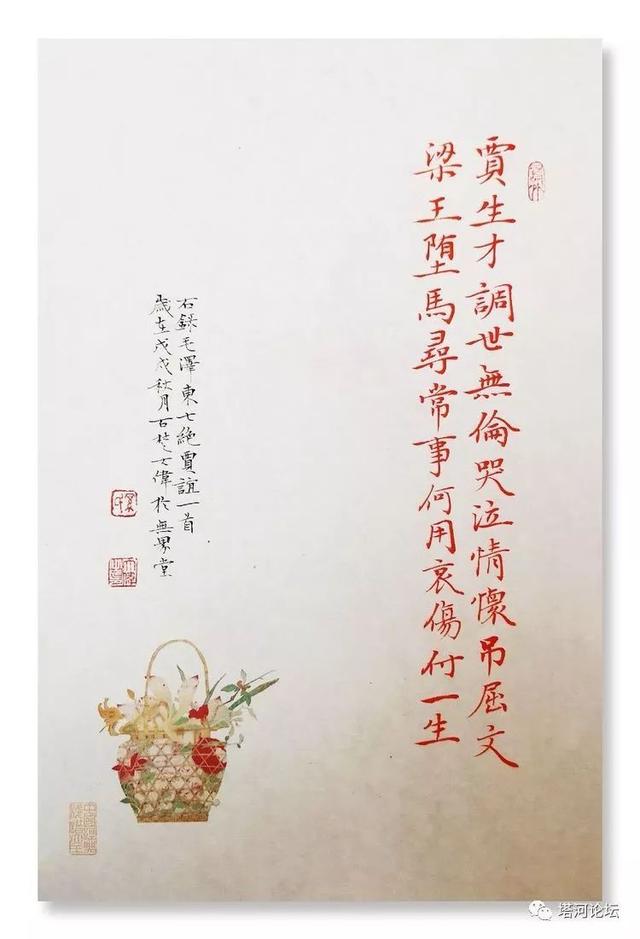 賈生才調世無倫哭泣情懷吊屈文
梁王墮馬尋常事何用哀傷付一生
右錄毛澤東七絶賈誼一首
歲在戊戌秋月石楚大偉於無界堂
塔河论坛